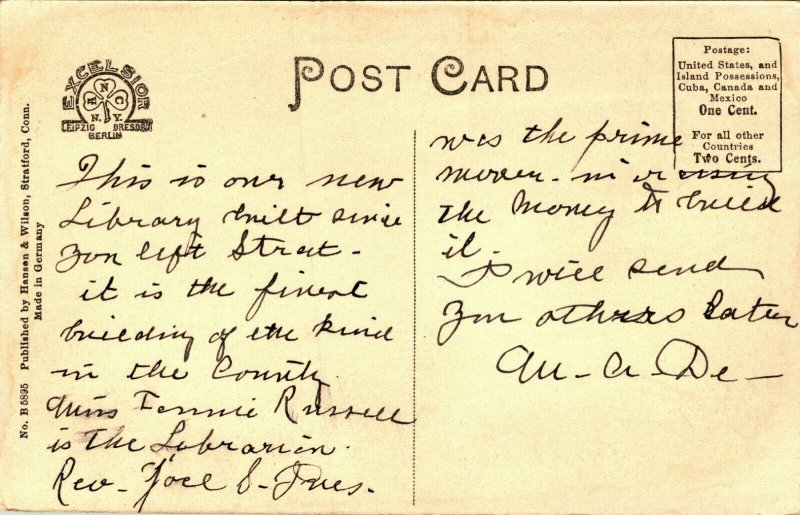 POST CARD
EXCELSIOR
H N C
N.Y.
LEIPZIG DRESDEN
BERLIN
Postage:
United States, and
Island Possessions,
Cuba, Canada and
Mexico
One Cent.
For all other
Countries
Two Cents.
No. B 5895 Published by Hansen & Wilson, Stratford, Conn.
Made in Germany
This is our new
Library built since
you left Strat-
it is the finest
building of the kind
in the County.
Miss Fannie Russell
is the Librarian.
Rev- Joel S- Ives.
was the prime
mover- in raising
the money to build
it.
I will send
you others later
M- A- De-